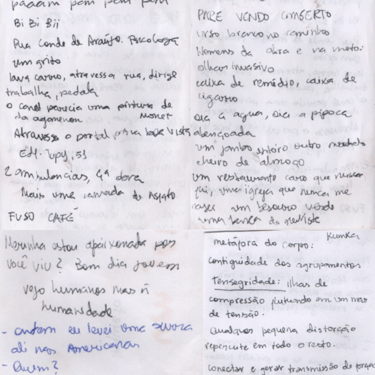 paaam pam pam pam
Bi Bi Bii
Rua Conde de Araújo. Psicóloga
um grito
lava carro, atravessa rua, dirige
trabalha, pedala
o canal parecia uma pintura de
Monet
Atravesso o portal p/ Boa Vista
Edf.
2 ambulâncias, 4ª dora
Mais uma camada de Asfalto
FUSO CAFÉ
PARE VENDO CIMBERTO
urso branco no caminho
Homens da obra e na moto:
olhar invasivo
caixa de remédio, caixa de
cigarro
Olha a água, olha a pipoca
abençoada
um jambo inteiro outro metade
cheiro de almoço
um restaurante caro que nunca
fui, uma igreja que nunca me
casei um besouro verde
uma banca de revista
estou apaixonada por
você viu? Bom dia jovem
vejo humanos mas ñ
humanidade
- ontem eu levei uma
ali nas Americanas
- Quem?
Kumka
metáfora do corpo:
contiguidade dos agrupamentos
Tensegridade: ilhas de
compressão flutuando em um mar
de tensão.
Qualquer pequena distorção
repercute em todo o resto.
conectar e gerar transmissão de forças